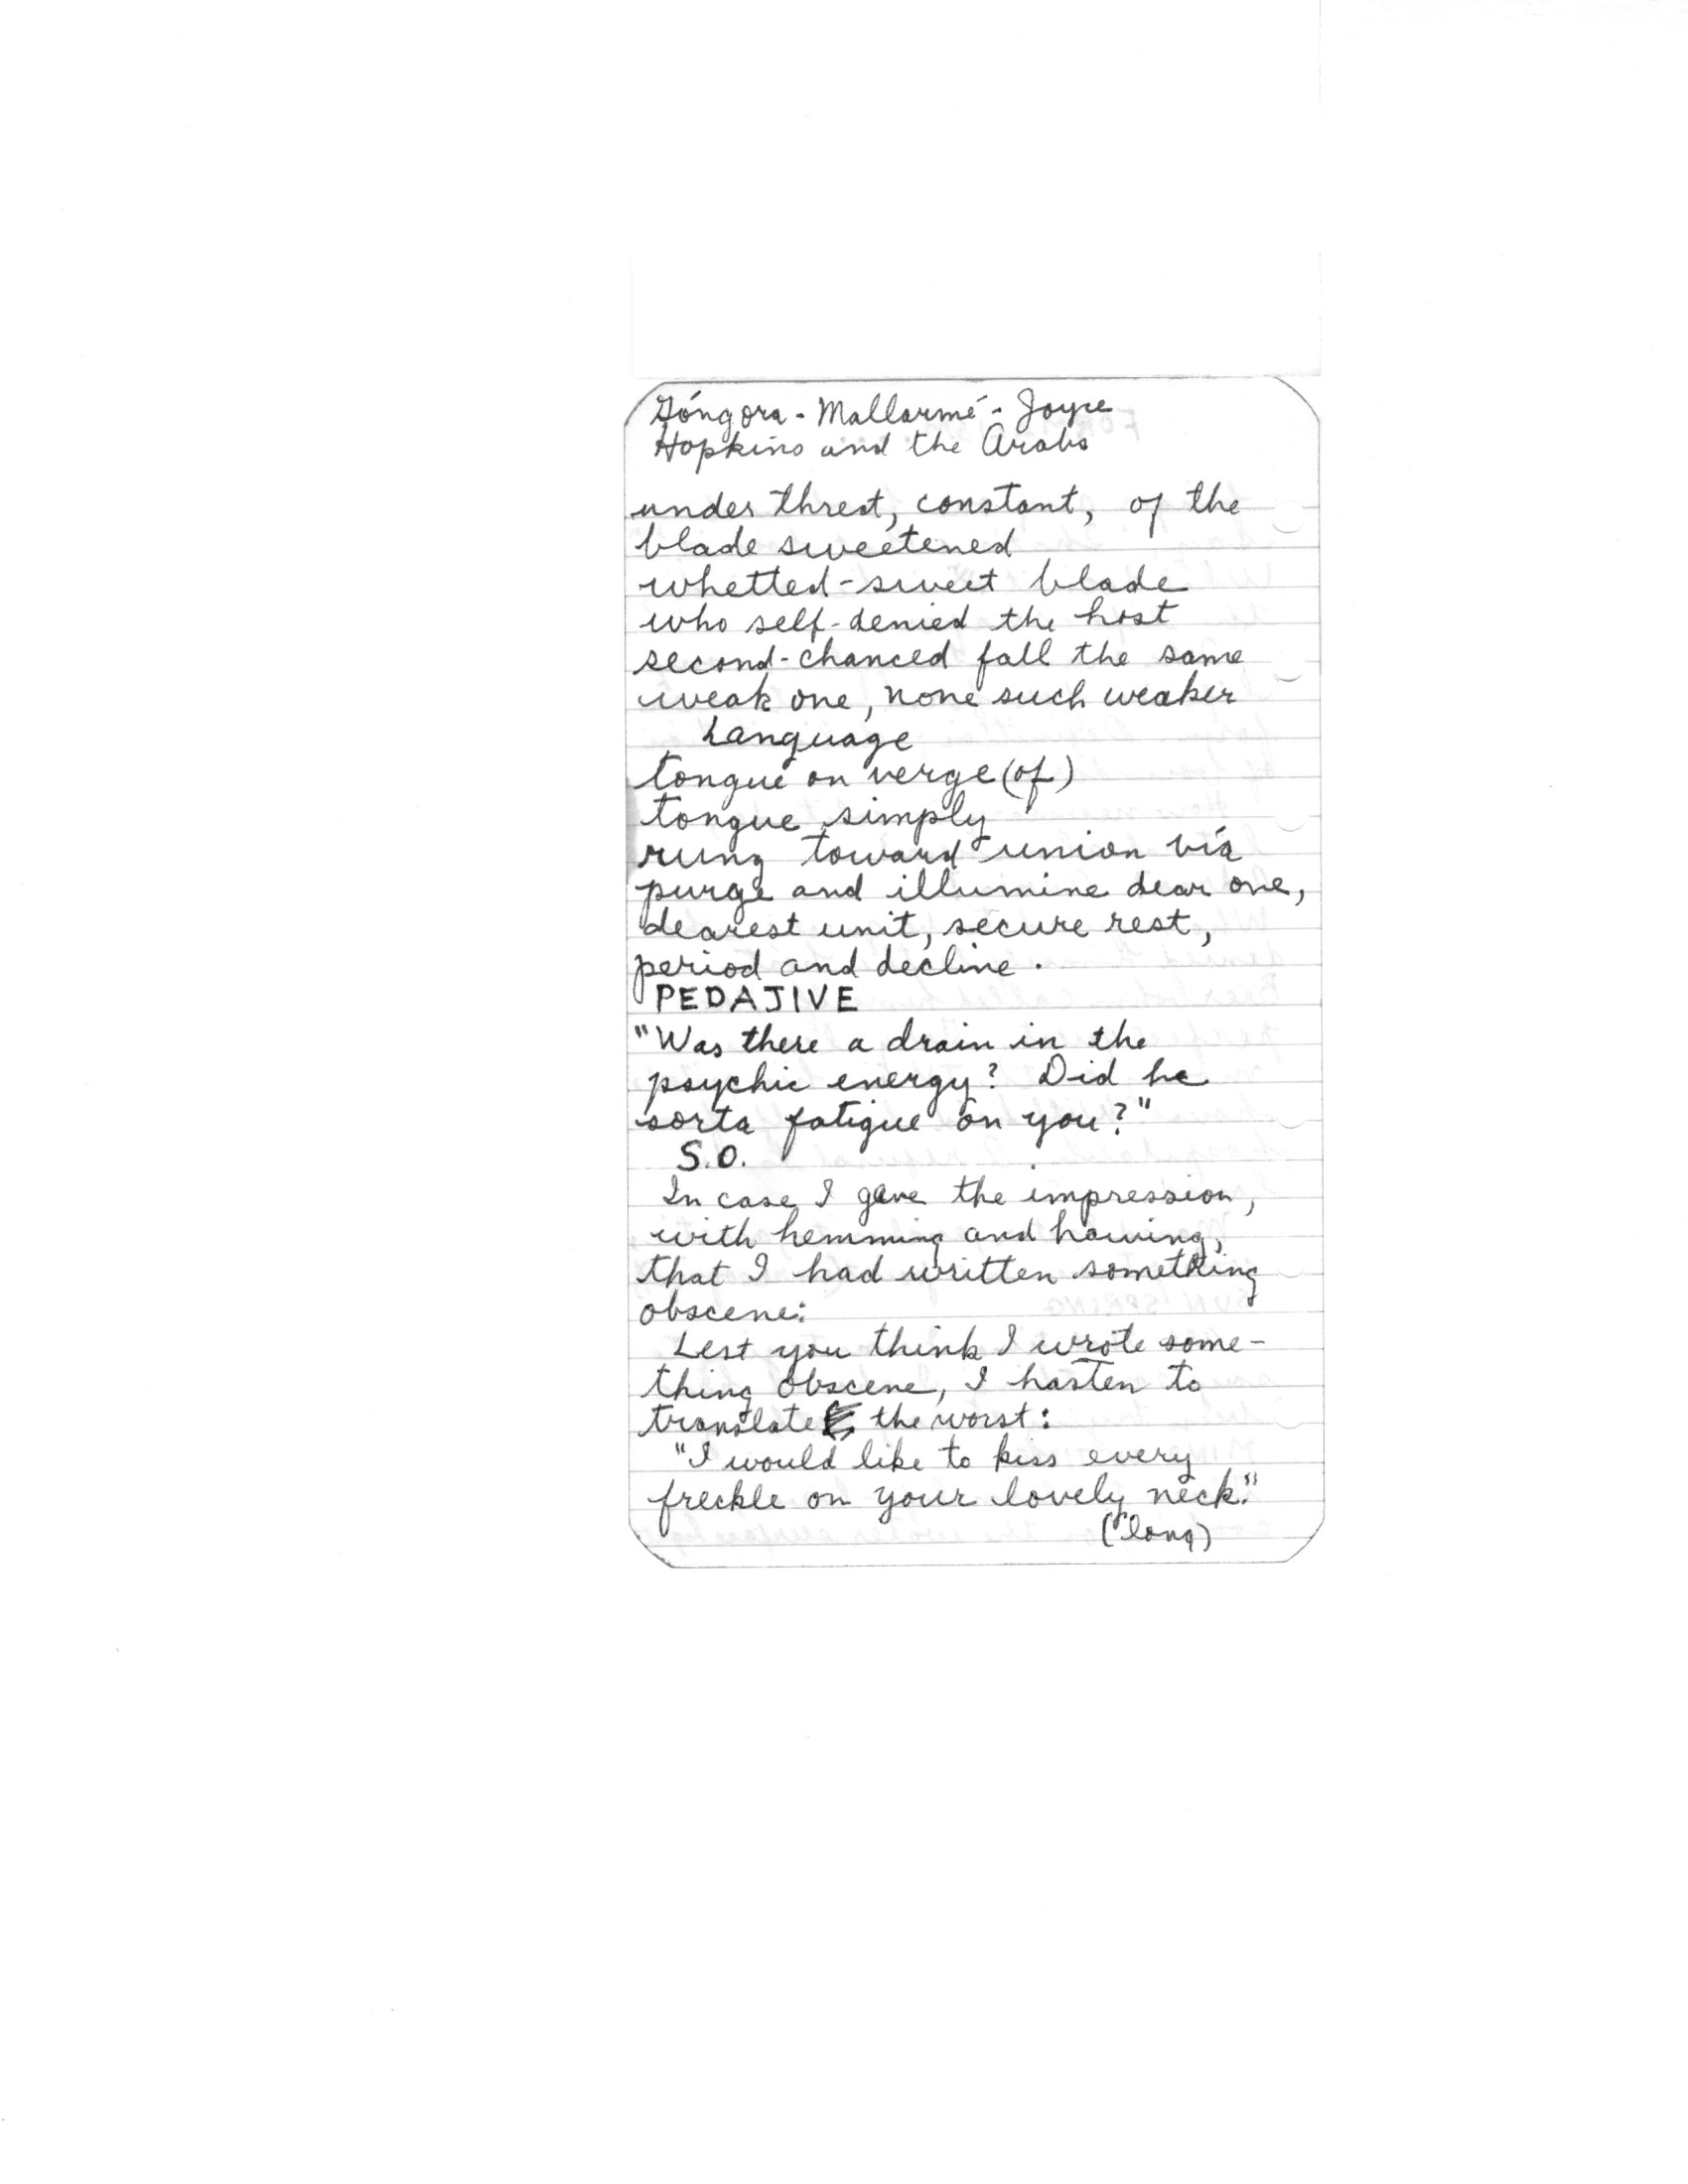 Góngora - Mallarmé - Joyce
Hopkins and the Arabs
under threat, constant, of the
blade sweetened
whetted-sweet blade
who self-denied the host
second-chanced fall the same
weak one, none such weaker
Language
tongue on verge (of)
tongue simply
rung toward union vía
purge and illumine dear one,
dearest unit, secure rest,
period and decline.
PEDAJIVE
"Was there a drain in the
psychic energy? Did he
sorta fatigue on you?"
S.O.
In case I gave the impression,
with hemming and hawing,
that I had written something
obscene:
Lest you think I wrote some-
thing obscene, I hasten to
translate the worst:
"I would like to kiss every
freckle on your lovely neck."
(long)